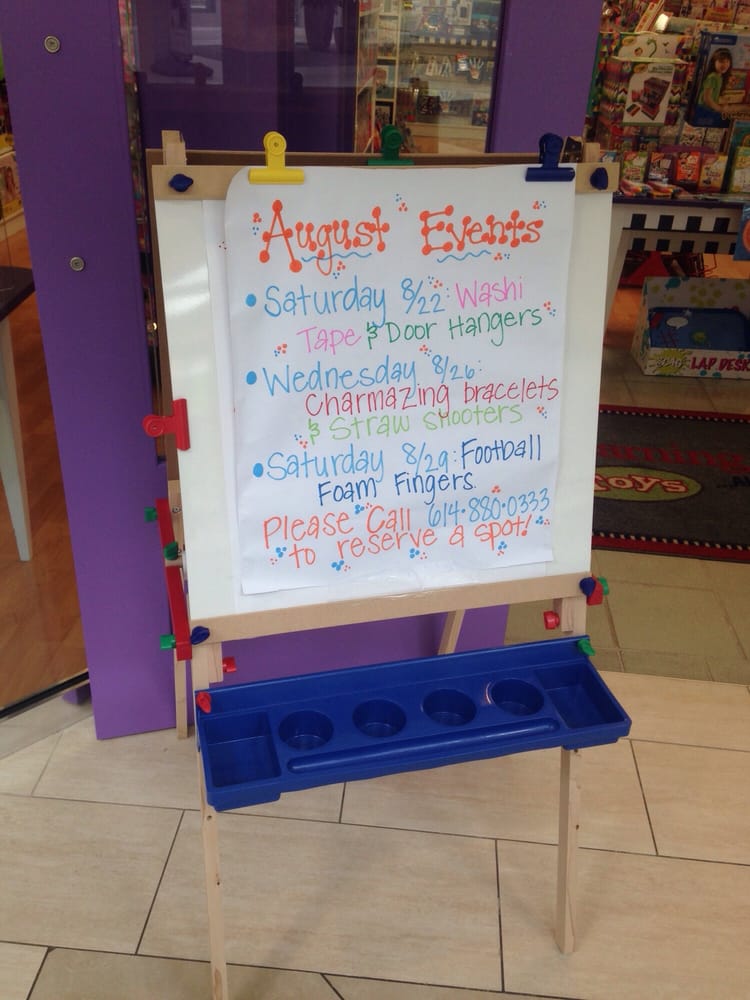 August Events
• Saturday 8/22: Washi
Tape & Door Hangers
• Wednesday 8/26:
Charmazing bracelets
& Straw Shooters
• Saturday 8/29: Football
Foam Fingers
Please Call 614·880·0333
to reserve a spot!
LAP DESK
toys